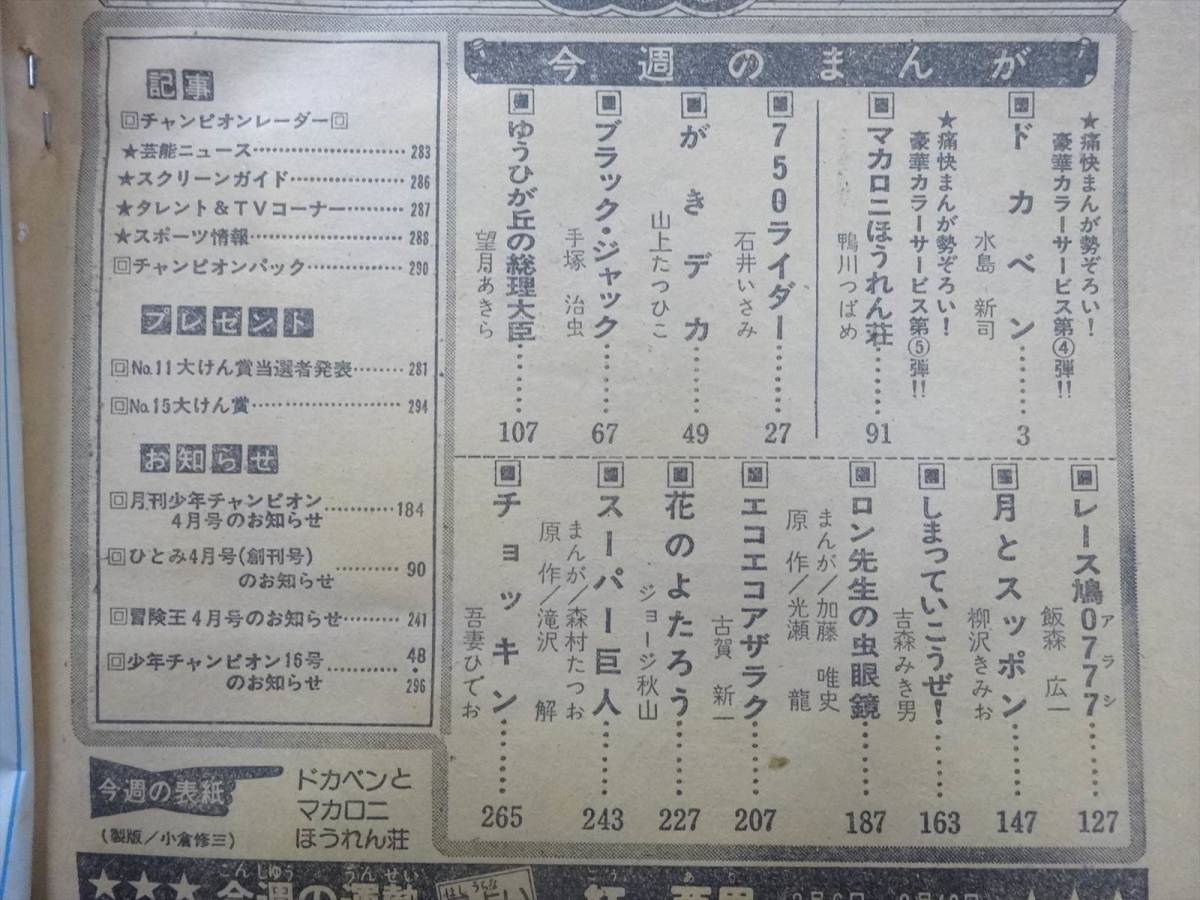 今週のまんが
★痛快まんが勢ぞろい!
豪華カラーサービス第④弾!!
回ドカベン……3
水島 新司
★痛快まんが勢ぞろい!
豪華カラーサービス第⑤弾!!
回マカロニほうれん荘……91
鴨川つばめ
回750ライダー……27
石井いさみ
回がきデカ……49
山上たつひこ
回ブラック・ジャック……67
手塚 治虫
回ゆうひが丘の総理大臣……107
望月あきら
回レース鳩0777……127
アラシ
飯森 広一
回月とスッポン……147
柳沢きみお
回しまっていこうぜ!……163
吉森みき男
回ロン先生の虫眼鏡……187
まんが/加藤 唯史
原 作/光瀬 龍
回エコエコアザラク……207
古賀 新一
回花のよたろう……227
ジョージ秋山
回スーパー巨人……243
まんが/森村たつお
原 作/滝沢 解
回チョッキン……265
吾妻ひでお
記事
回チャンピオンレーダー回
★芸能ニュース……283
★スクリーンガイド……286
★タレント&TVコーナー……287
★スポーツ情報……288
回チャンピオンパック……290
プレゼント
回No.11大けん賞当選者発表……281
回No.15大けん賞……294
お知らせ
回月刊少年チャンピオン
4月号のお知らせ……184
回ひとみ4月号(創刊号)
のお知らせ……90
回冒険王4月号のお知らせ……241
回少年チャンピオン16号
のお知らせ……48・296
今週の表紙
(製版/小倉修三)
ドカベンと
マカロニ
ほうれん荘
こんしゅう うんせい
★★★今週の運勢